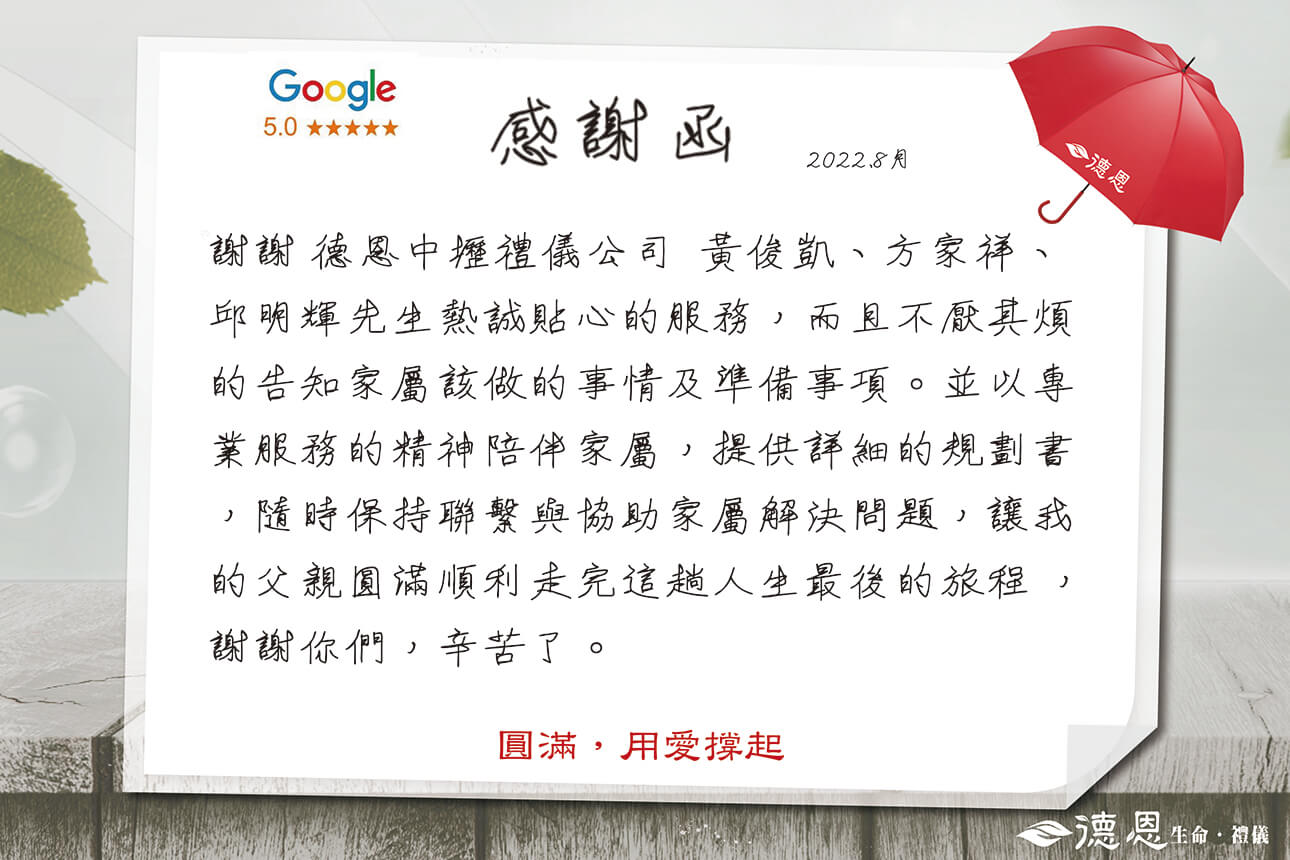 Google
5.0 ★★★★★
感謝函
2022.8月
德恩
謝謝 德恩中壢禮儀公司 黃俊凱、方家祥、
邱明輝先生熱誠貼心的服務，而且不厭其煩
的告知家屬該做的事情及準備事項。並以專
業服務的精神陪伴家屬，提供詳細的規劃書
，隨時保持聯繫與協助家屬解決問題，讓我
的父親圓滿順利走完這趟人生最後的旅程，
謝謝你們，辛苦了。
圓滿，用愛撐起
德恩生命·禮儀